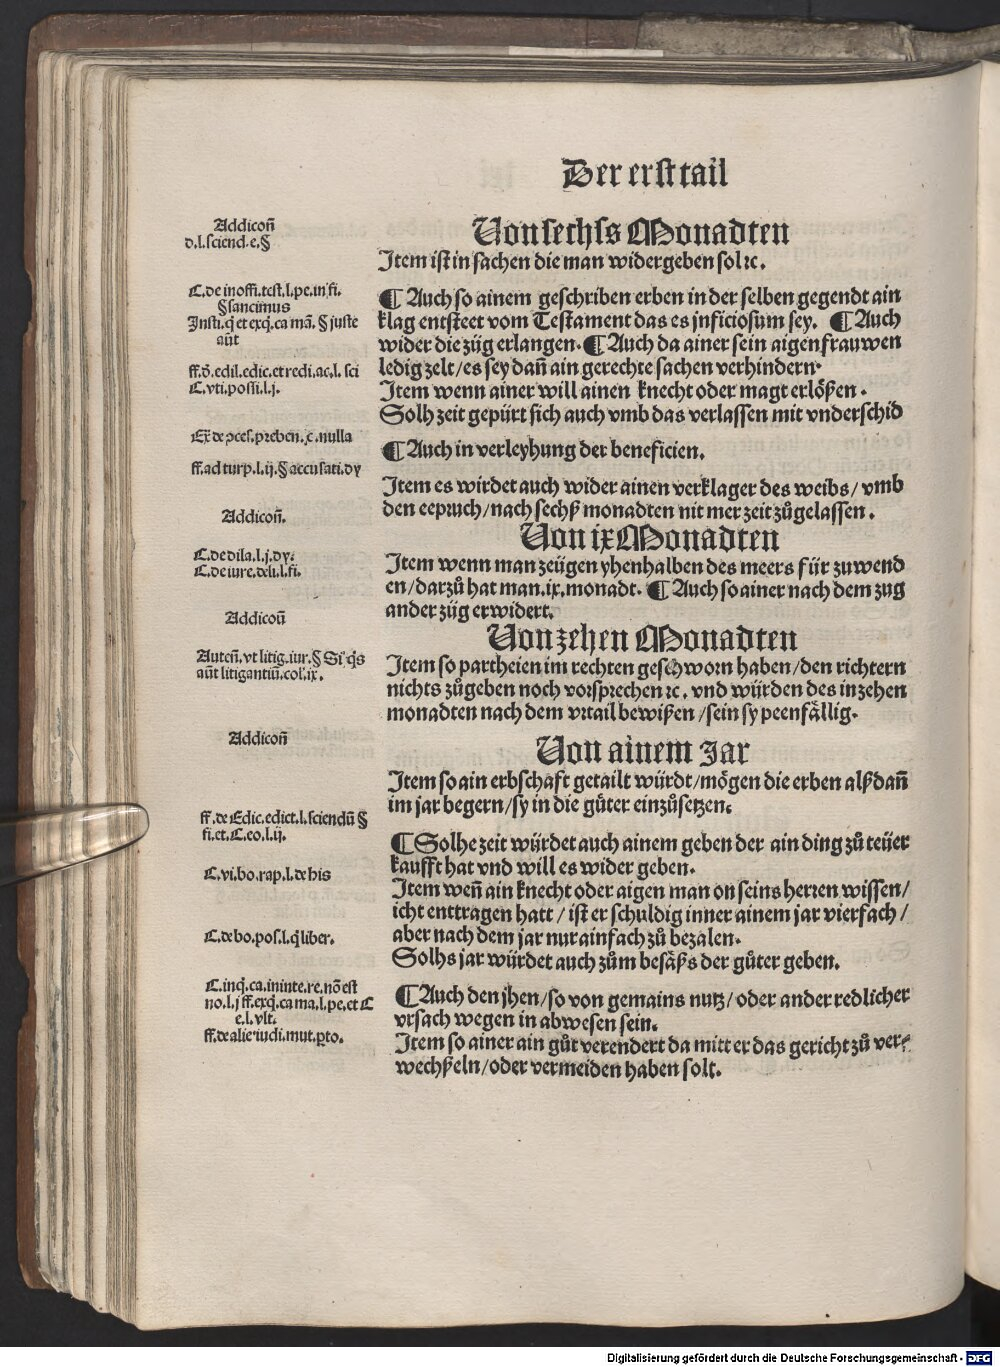 Der erst tail
Addicon̄
d.l.sciend.e.§
Von sechss Monadten
Item ist in sachen die man widergeben sol ꝛc.
C.de inoffi.test.l.pe.in fi.
§ sancimus
Insti.q̇ et exq̇.ca mā. § iuste
aūt
¶ Auch so ainem geschriben erben in der selben gegendt ain
klag entsteet vom Testament das es inficiosum sey. ¶ Auch
wider die züg erlangen. ¶ Auch da ainer sein aigen frauwen
ff.ō.edil.edic.et redi.ac.l.sci
C.vti.possi.l.j.
ledig zelt/es sey dan̄ ain gerechte sachen verhindern.
Item wenn ainer will ainen knecht oder magt erlößen.
Solh zeit gepürt sich auch vmb das verlassen mit vnderschid
Ex̄ de ꝯces.preben.c.nulla
¶ Auch in verleyhung der beneficien.
ff.ad turp.l.ij.§ accusati.dy
Item es wirdet auch wider ainen verklager des weibs/ vmb
den eepruch/nach sechß monadten nit mer zeit zůgelassen.
Addicon̄.
Von ix Monadten
C.de dila.l.j.dy.
C.de iure.deli.l.fi.
Item wenn man zeügen yhenhalben des meers für zuwend
en/darzů hat man.ix.monadt. ¶ Auch so ainer nach dem zug
ander züg erwidert.
Addicon̄
Von zehen Monadten
Auten̄.vt litig.iur.§ Si q̇s
aūt litigantiū.col.ix.
Item so partheien im rechten geschworn haben/den richtern
nichts zůgeben noch vorsprechen ꝛc. vnd würden des in zehen
monadten nach dem vrtail bewißen/sein sy peenfällig.
Addicon̄
Von ainem Jar
Item so ain erbschaft getailt würdt/mögen die erben alß dan̄
im jar begern/sy in die güter einzůsetzen.
ff.de Edic.edict.l.sciendū §
fi.et.C.eo.l.ij.
¶ Solhe zeit würdet auch ainem geben der ain ding zů teüer
kaufft hat vnd will es wider geben.
C.vi.bo.rap.l.de his
Item wen̄ ain knecht oder aigen man on seins herren wissen/
icht enttragen hatt / ist er schuldig inner ainem jar vierfach /
aber nach dem jar nur ainfach zů bezalen.
C.de bo.pos.l.q̇ liber.
Solhs jar würdet auch zům besäß der güter geben.
C.inq̇.ca.in inte.re.nō est
no.l.j ff.exq̇.ca ma.l.pe.et C
e.l.vlt.
¶ Auch den jhen/so von gemains nutz/oder ander redlicher
vrsach wegen in abwesen sein.
ff.de alie iudi.mut.ꝓto.
Item so ainer ain gůt verendert da mitt er das gericht zů ver⸗
wechßeln/oder vermeiden haben solt.
Digitalisierung gefördert durch die Deutsche Forschungsgemeinschaft - DFG